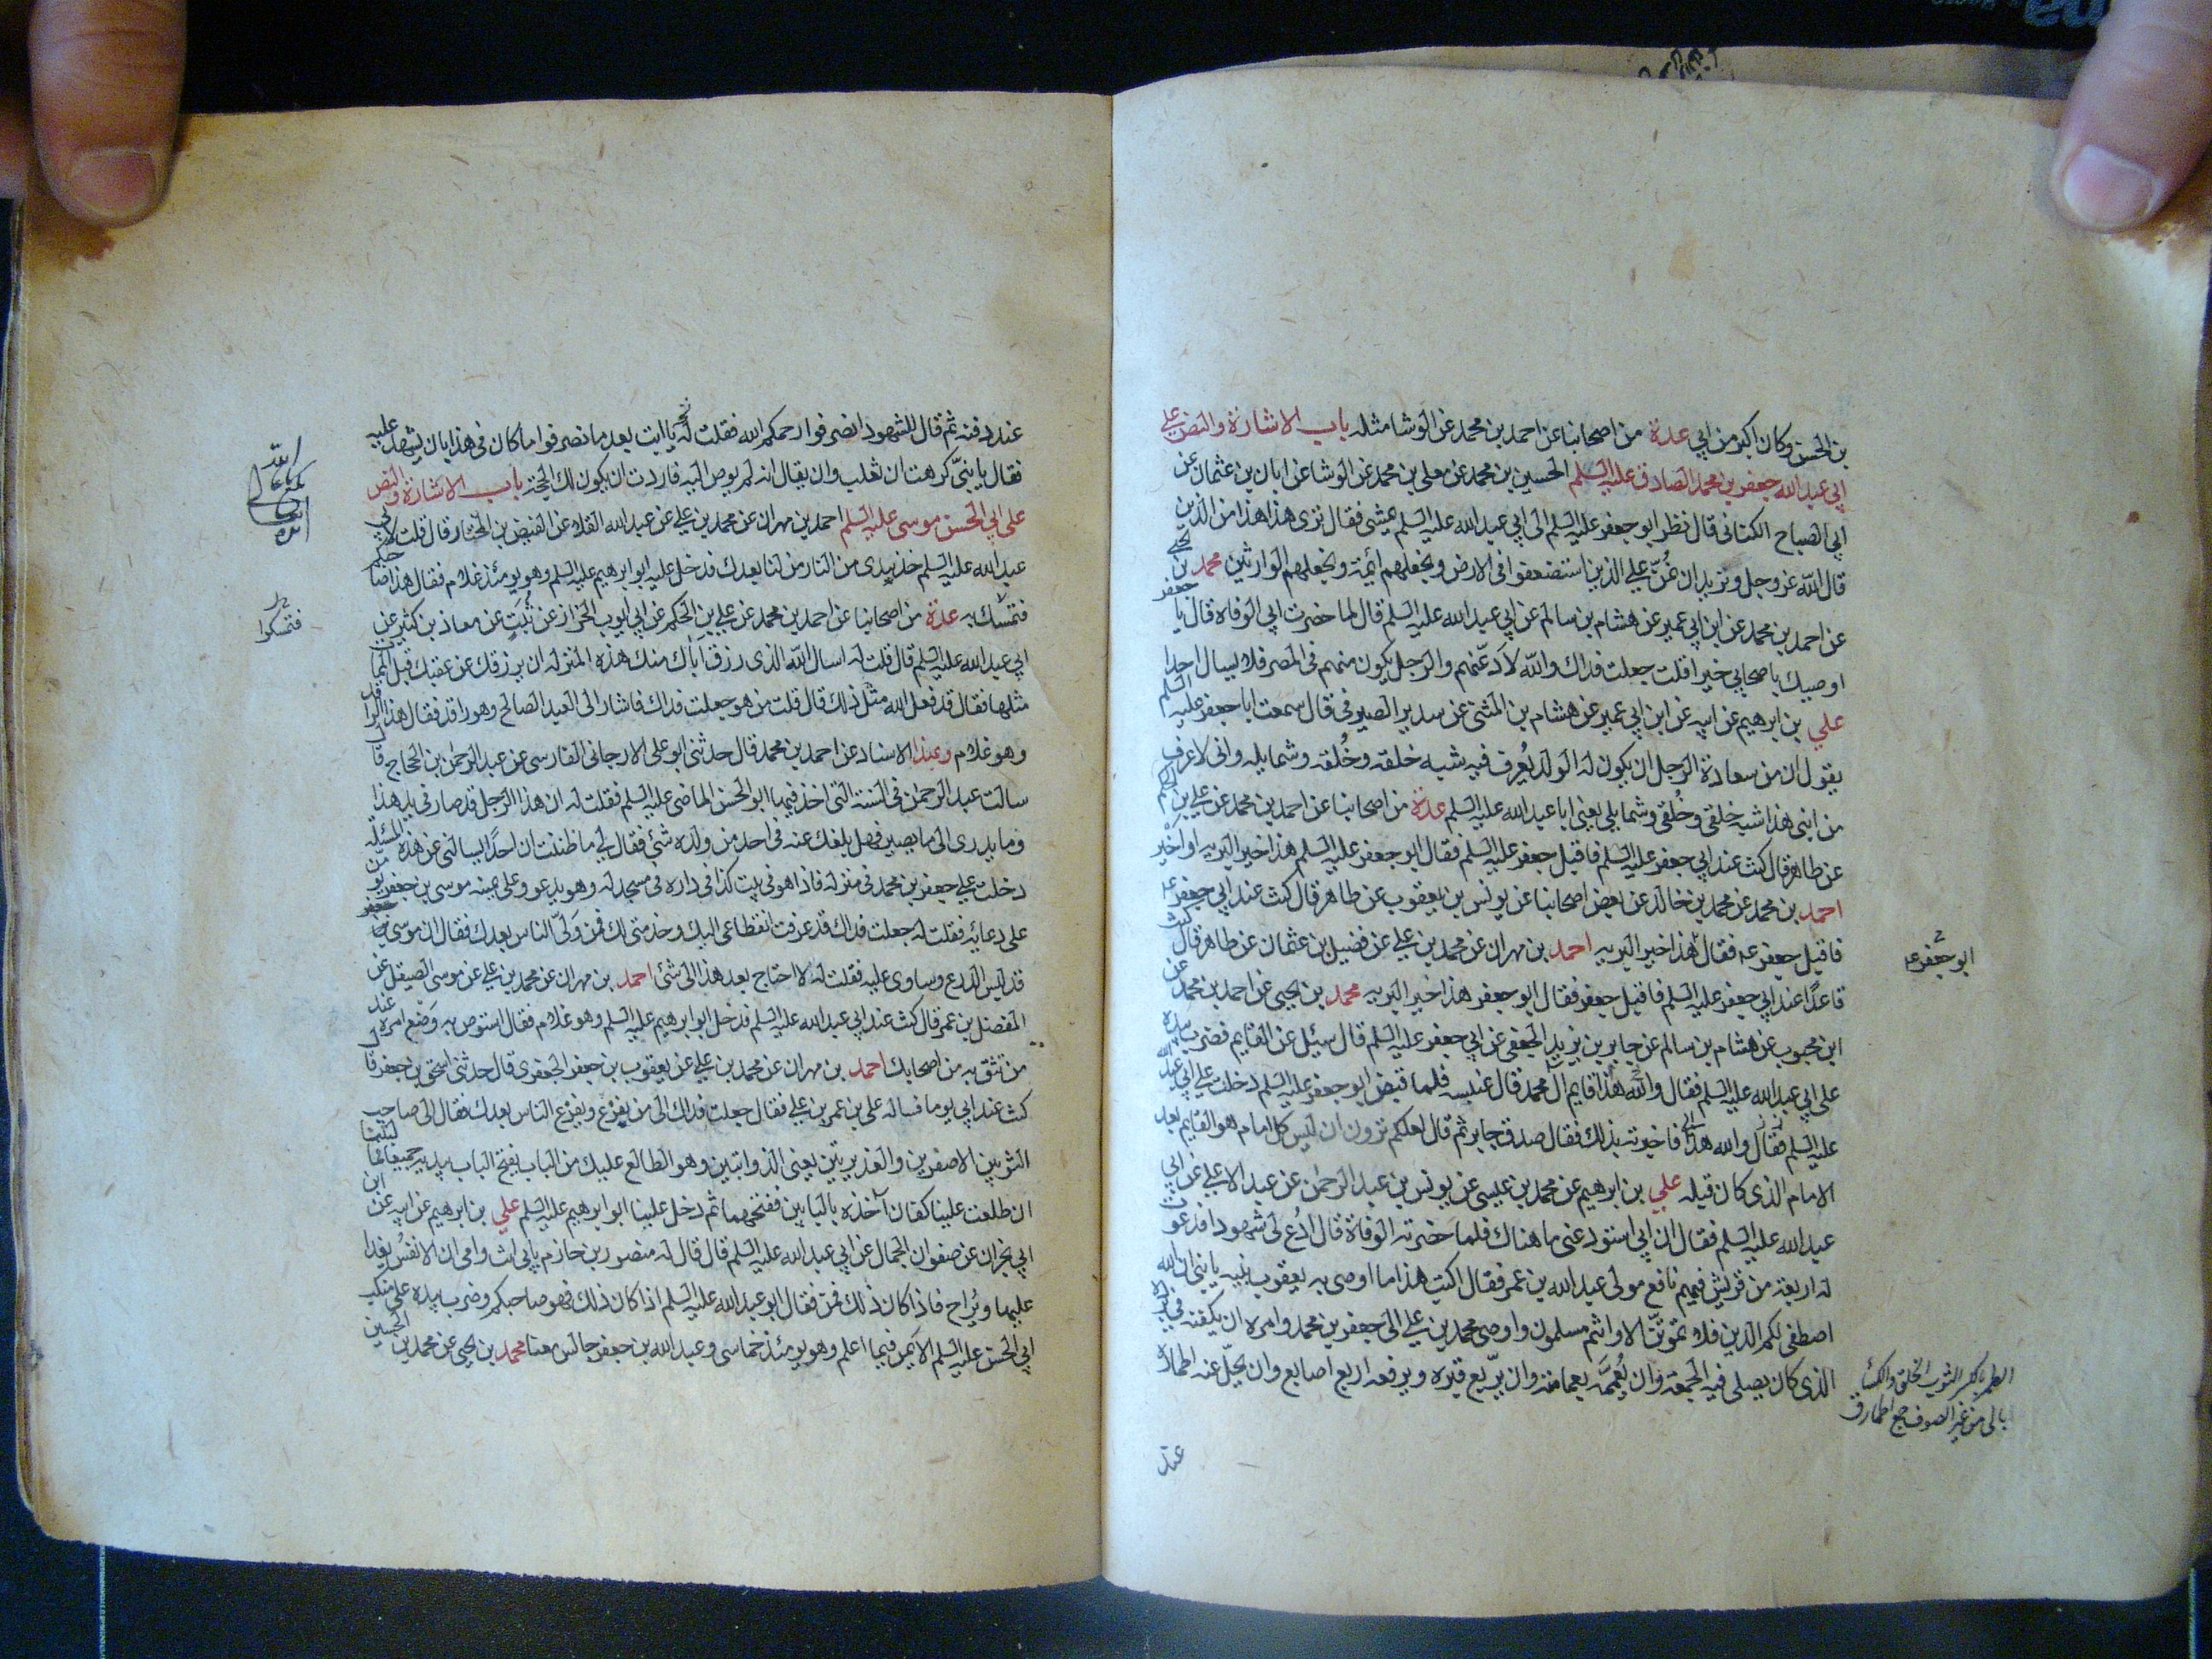 بن الحسن وكان اكبر من ابي عدة من اصحابنا عن احمد بن محمد عن الوشا مثله باب الاشارة والنص على
ابي عبد الله جعفر بن محمد الصادق عليه السلم الحسين بن محمد عن معلى بن محمد عن الوشا عن ابان بن عثمان عن
ابي الصباح الكناني قال نظر ابو جعفر عليه السلم الى ابي عبد الله عليه السلم يمشي فقال ترى هذا هذا من الذين
قال الله عز وجل ونريد ان نمن على الذين استضعفوا في الارض ونجعلهم ائمة ونجعلهم الوارثين محمد بن يحيى
عن احمد بن محمد عن ابن ابي عمير عن هشام بن سالم عن ابي عبد الله عليه السلم قال لما حضرت ابي الوفاة قال يا جعفر
اوصيك باصحابي خيرا قلت جعلت فداك والله لادعنهم والرجل يكون منهم في المصر فلا يسال احدا
علي بن ابرهيم عن ابيه عن ابن ابي عمير عن هشام بن المثنى عن سدير الصيرفي قال سمعت ابا جعفر عليه السلم
يقول ان من سعادة الرجل ان يكون له الولد يعرف فيه شبه خلقه وخلقه وشمايله واني لاعرف
من ابني هذا شبه خلقي وخلقي وشمايلي يعني ابا عبد الله عليه السلم عدة من اصحابنا عن احمد بن محمد عن علي بن الحكم
عن طاهر قال كنت عند ابي جعفر عليه السلم فاقبل جعفر عليه السلم فقال ابو جعفر عليه السلم هذا خير البريه او اخير
احمد بن محمد عن محمد بن خالد عن بعض اصحابنا عن يونس بن يعقوب عن طاهر قال كنت عند ابي جعفر ع
فاقبل جعفر ع فقال هذا خير البريه احمد بن مهران عن محمد بن علي عن فضيل بن عثمان عن طاهر قال كنت
ابو جعفر ع
قاعدا عند ابي جعفر عليه السلم فاقبل جعفر فقال ابو جعفر هذا خير البريه محمد بن يحيى عن احمد بن محمد عن
ابن محبوب عن هشام بن سالم عن جابر بن يزيد الجعفي عن ابي جعفر عليه السلم قال سئل عن القايم فضرب بيده
على ابي عبد الله عليه السلم فقال والله هذا قايم ال محمد قال عنبسه فلما قبض ابو جعفر عليه السلم دخلت على ابي عبد الله
عليه السلم فاخبرته بذلك فقال صدق جابر ثم قال لعلكم ترون ان ليس كل امام هو القايم بعد
الامام الذي كان قبله علي بن ابرهيم عن محمد بن عيسى عن يونس بن عبد الرحمن عن عبد الاعلى عن ابي
عبد الله عليه السلم فقال ان ابي استودعني ما هناك فلما حضرته الوفاة قال ادع لي شهودا فدعوت
له اربعة من قريش فيهم نافع مولى عبد الله بن عمر فقال اكتب هذا ما اوصى به يعقوب بنيه يا بني ان الله
اصطفى لكم الدين فلا تموتن الا وانتم مسلمون واوصى محمد بن علي الى جعفر بن محمد وامره ان يكفنه في برده
الذي كان يصلي فيه الجمعة وان يعممه بعمامته وان يربع قبره ويرفعه اربع اصابع وان يحل عنه اطماره
الطمر بالكسر الثوب الخلق والكساء
البالي من غير الصوف ج اطمار ق
عند
عند دفنه ثم قال للشهود انصرفوا رحمكم الله فقلت له يا ابت بعد ما نصرفوا ما كان في هذا بان يشهد عليه
فقال يا بني كرهت ان تغلب وان يقال انه لم يوص اليه فاردت ان يكون لك الحجة باب الاشارة والنص
على ابي الحسن موسى عليه السلم احمد بن مهران عن محمد بن علي عن عبد الله القلا عن الفيض بن المختار قال قلت لابي
عبد الله عليه السلم خذ بيدي من النار من لنا بعدك فدخل عليه ابو ابرهيم عليه السلم وهو يومئذ غلام فقال هذا صاحبكم
فتمسك به عدة من اصحابنا عن احمد بن محمد عن علي بن الحكم عن ابي ايوب الخزاز عن ثبيت عن معاذ بن كثير عن
فتمسكوا
ابي عبد الله عليه السلم قال قلت له اسال الله الذي رزق اباك منك هذه المنزلة ان يرزقك من عقبك قبل الممات
مثلها فقال قد فعل الله مثل ذلك قال قلت من هو جعلت فداك فاشار الى العبد الصالح وهو راقد فقال هذا الراقد
وهو غلام وبهذا الاسناد عن احمد بن محمد قال حدثني ابو علي الارجاني الفارسي عن عبد الرحمن بن الحجاج قال
سالت عبد الرحمن في السنة التي اخذ فيها ابو الحسن الماضي عليه السلم فقلت له ان هذا الرجل قد صار في يد هذا
وما يدرى الى ما يصير فهل بلغك عنه في احد من ولده شئ فقال لي ما ظننت ان احدا يسالني عن هذه المسئله
دخلت على جعفر بن محمد في منزله فاذا هو في بيت كذا في داره في مسجد له وهو يدعو وعلى يمينه موسى بن جعفر يومن
على دعائه فقلت له جعلت فداك قد عرفت انقطاعي اليك وخدمتي لك فمن ولي الناس بعدك فقال ان موسى بن جعفر
قد لبس الدرع وساوى عليه فقلت له لا احتاج بعد هذا الى شئ احمد بن مهران عن محمد بن علي عن موسى الصيقل عن
المفضل بن عمر قال كنت عند ابي عبد الله عليه السلم فدخل ابو ابرهيم عليه السلم وهو غلام فقال استوص به وضع امره عند
من تثق به من اصحابك احمد بن مهران عن محمد بن علي عن يعقوب بن جعفر الجعفري قال حدثني اسحق بن جعفر قال
كنت عند ابي يوما فساله علي بن عمر بن علي فقال جعلت فداك الى من نفزع ويفزع الناس بعدك فقال الى صاحب
الثوبين الاصفرين والغديرتين يعني الذوابتين وهو الطالع عليك من الباب يفتح الباب بيديه جميعا فما لبثنا
ان طلعت علينا كفان آخذة بالبابين ففتحهما ثم دخل علينا ابو ابرهيم عليه السلم علي بن ابرهيم عن ابيه عن ابن
ابي نجران عن صفوان الجمال عن ابي عبد الله عليه السلم قال قال له منصور بن حازم بابي انت وامي ان الانفس يغدا
عليها ويراح فاذا كان ذلك فمن فقال ابو عبد الله عليه السلم اذا كان ذلك فهو صاحبكم وضرب بيده على منكب
ابي الحسن عليه السلم الايمن فيما اعلم وهو يومئذ خماسي وعبد الله بن جعفر جالس معنا محمد بن يحيى عن محمد بن الحسين